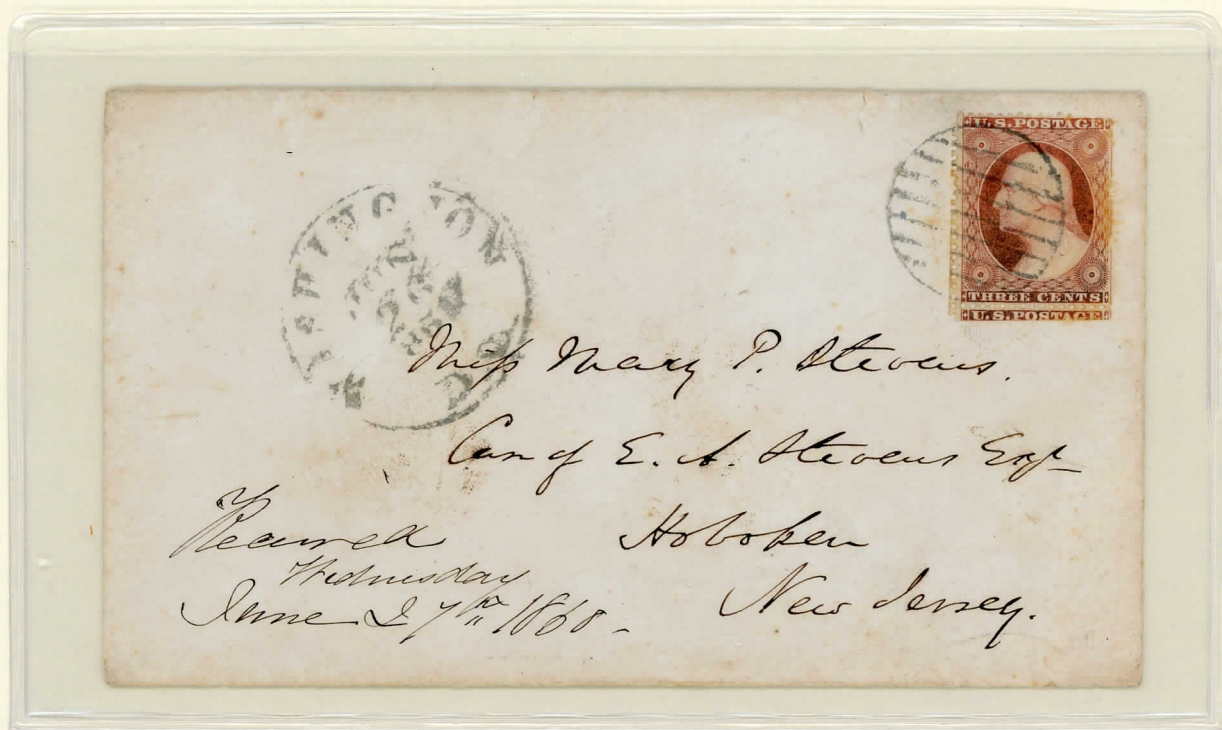 U.S. POSTAGE
THREE CENTS
U.S. POSTAGE
JUN
26
1860
Miss Mary P. Stevens.
Care of E. A. Stevens Esqr
Hoboken
New Jersey.
Received
Wednesday
June 27th 1860.